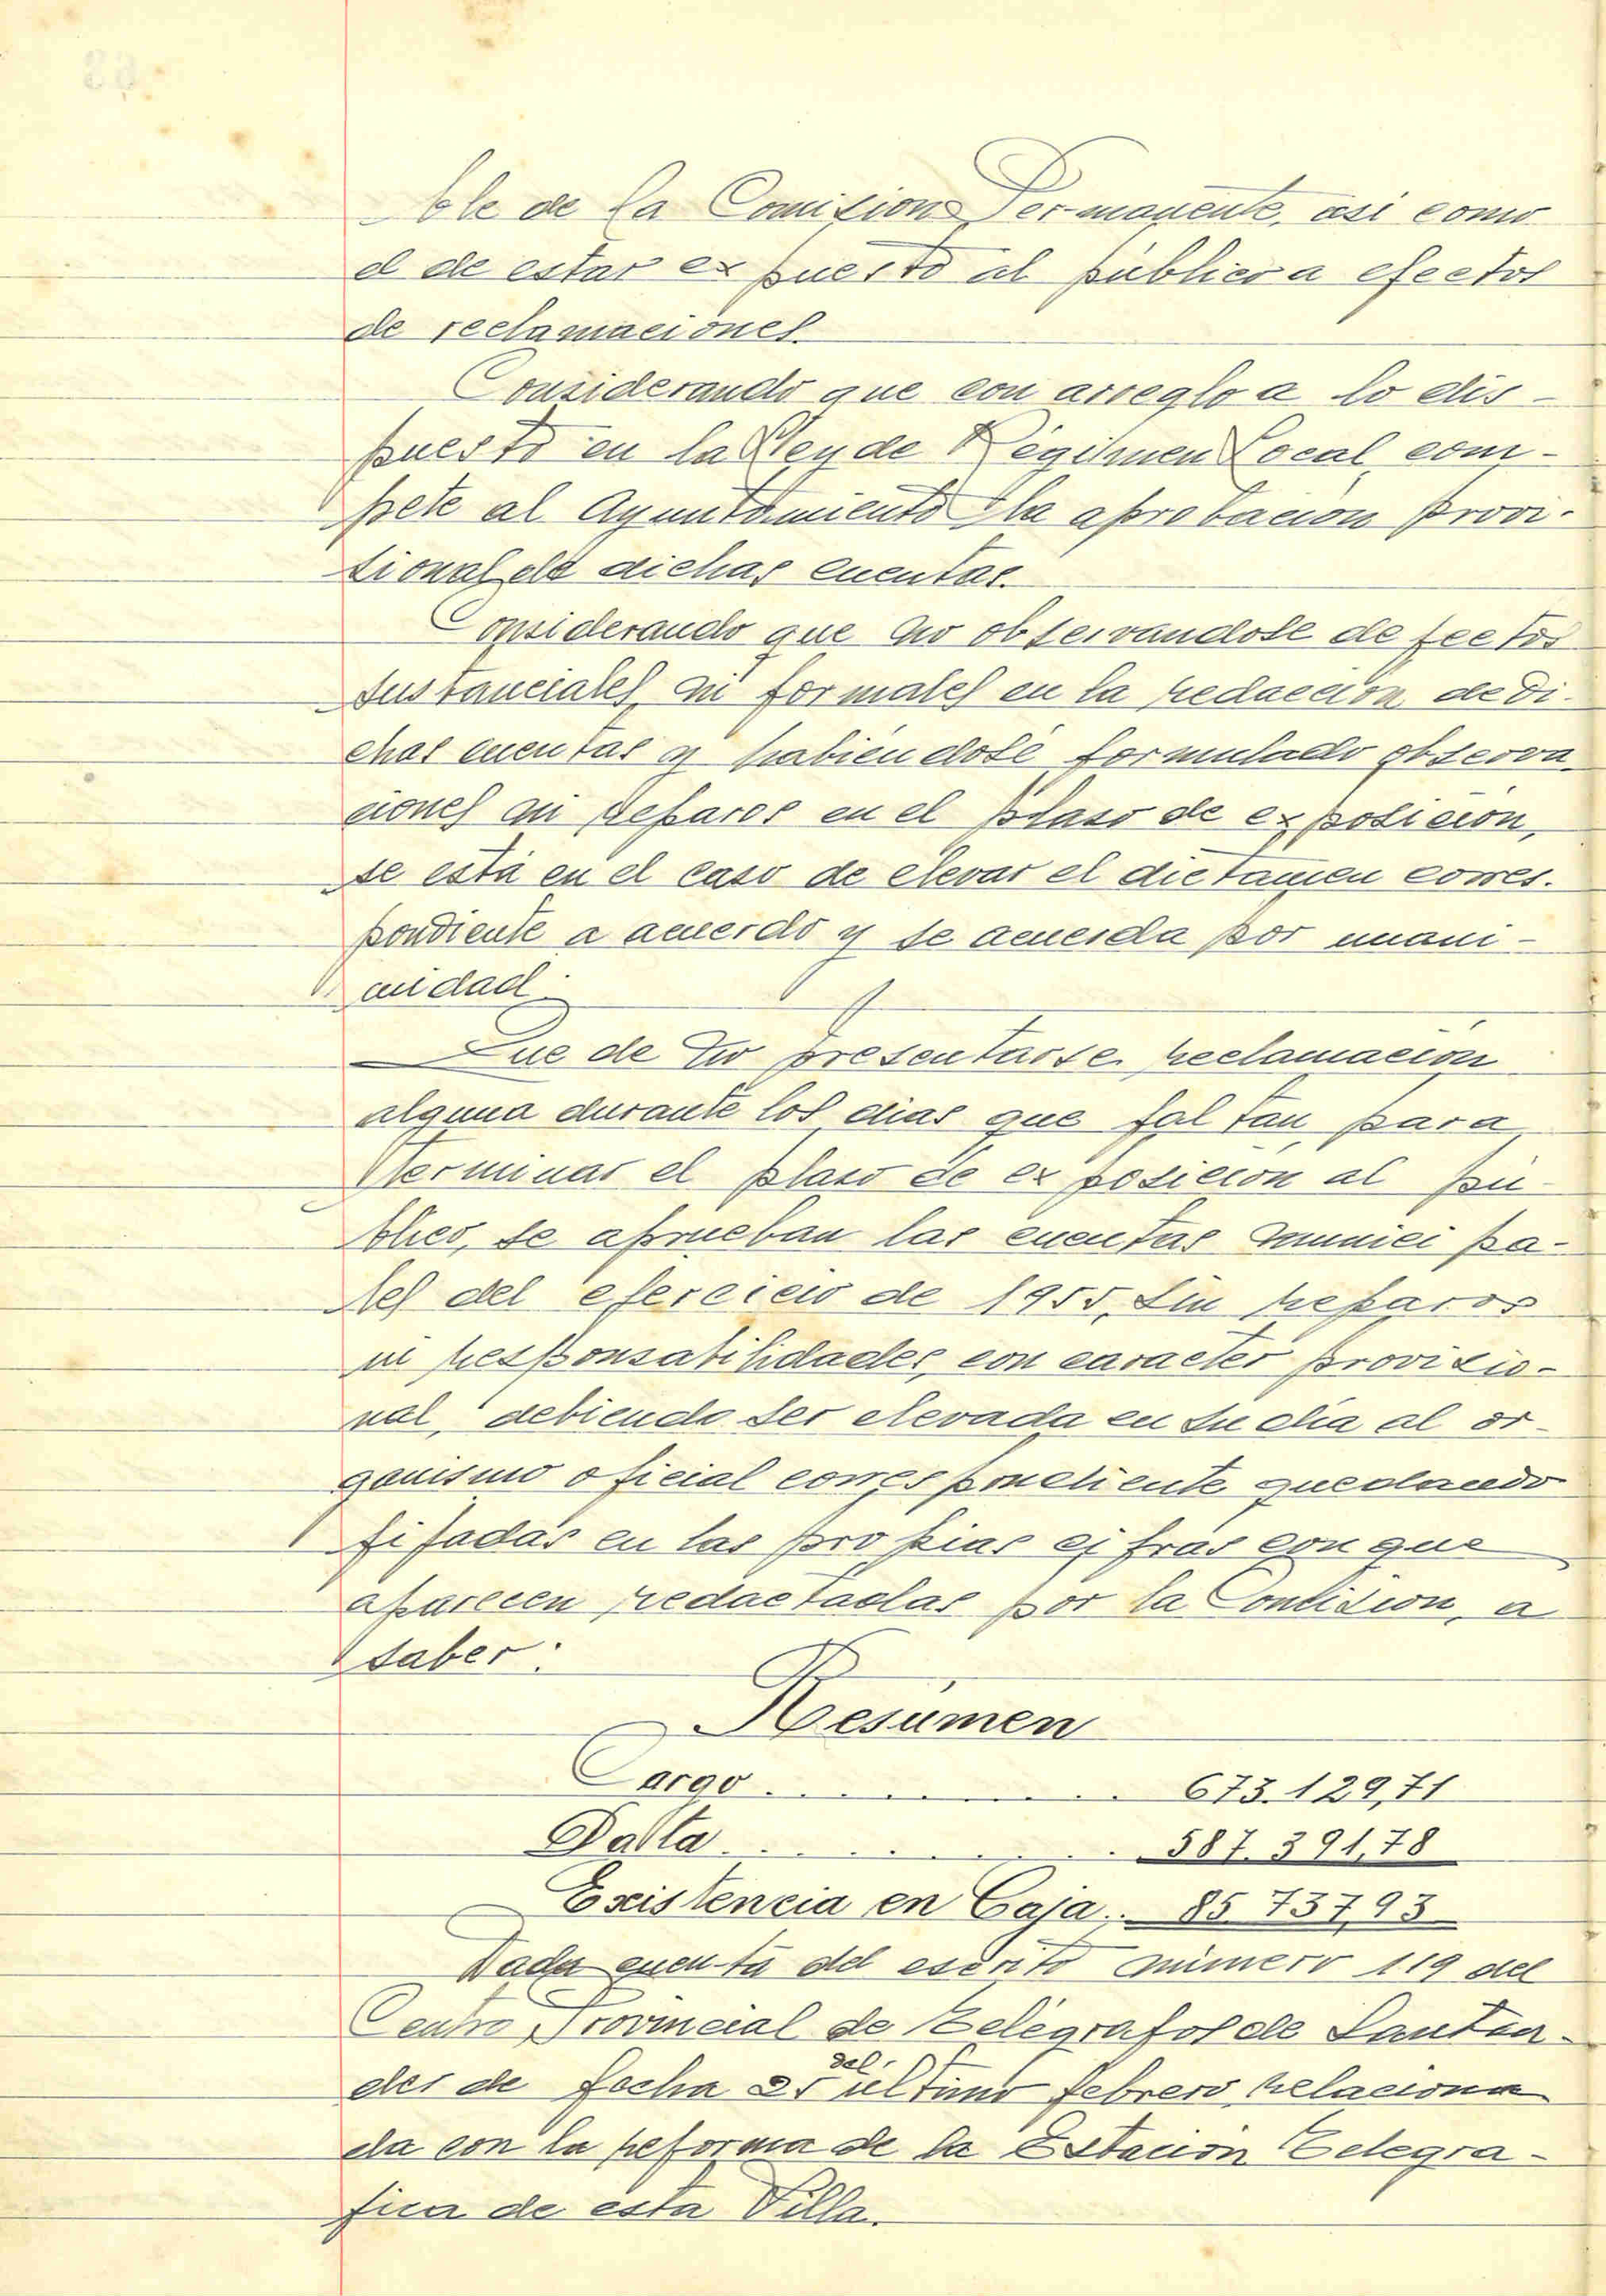 ble de la Comision Permanente, asi como
el de estar expuesto al público a efectos
de reclamaciones.
Considerando que con arreglo a lo dis-
puesto en la Ley de Régimen Local, com-
pete al Ayuntamiento la aprobación provi-
sional de dichas cuentas.
Considerando que no observandose defectos
sustanciales, ni formales en la redacción de di-
chas cuentas y habiéndose formulado observa
ciones ni reparos en el plaso de exposición,
se está en el caso de elevar el dictamen corres-
pondiente a acuerdo y se acuerda por unani-
midad:
Que de no presentarse reclamación
alguna durante los dias que faltan para
terminar el plaso de exposición al pú-
blico, se aprueban las cuentas municipa-
les del ejercicio de 1955, sin reparos
ni responsabilidades, con caracter provisio-
nal, debiendo ser elevada en su dia al or-
ganismo oficial correspondiente quedando
fijadas en las propias cifras con que
aparecen redactadas por la Comision, a
saber:
Resúmen
Cargo . . . . . . . . . 673.129,71
Datta . . . . . . . . . 587.391,78
Existencia en Caja.. 85.737,93
Dada cuenta del escrito número 119 del
Centro Provincial de Telégrafos de Santan-
der de fecha 25 del último febrero, relaciona
da con la reforma de la Estacion Telegra-
fica de esta Villa.